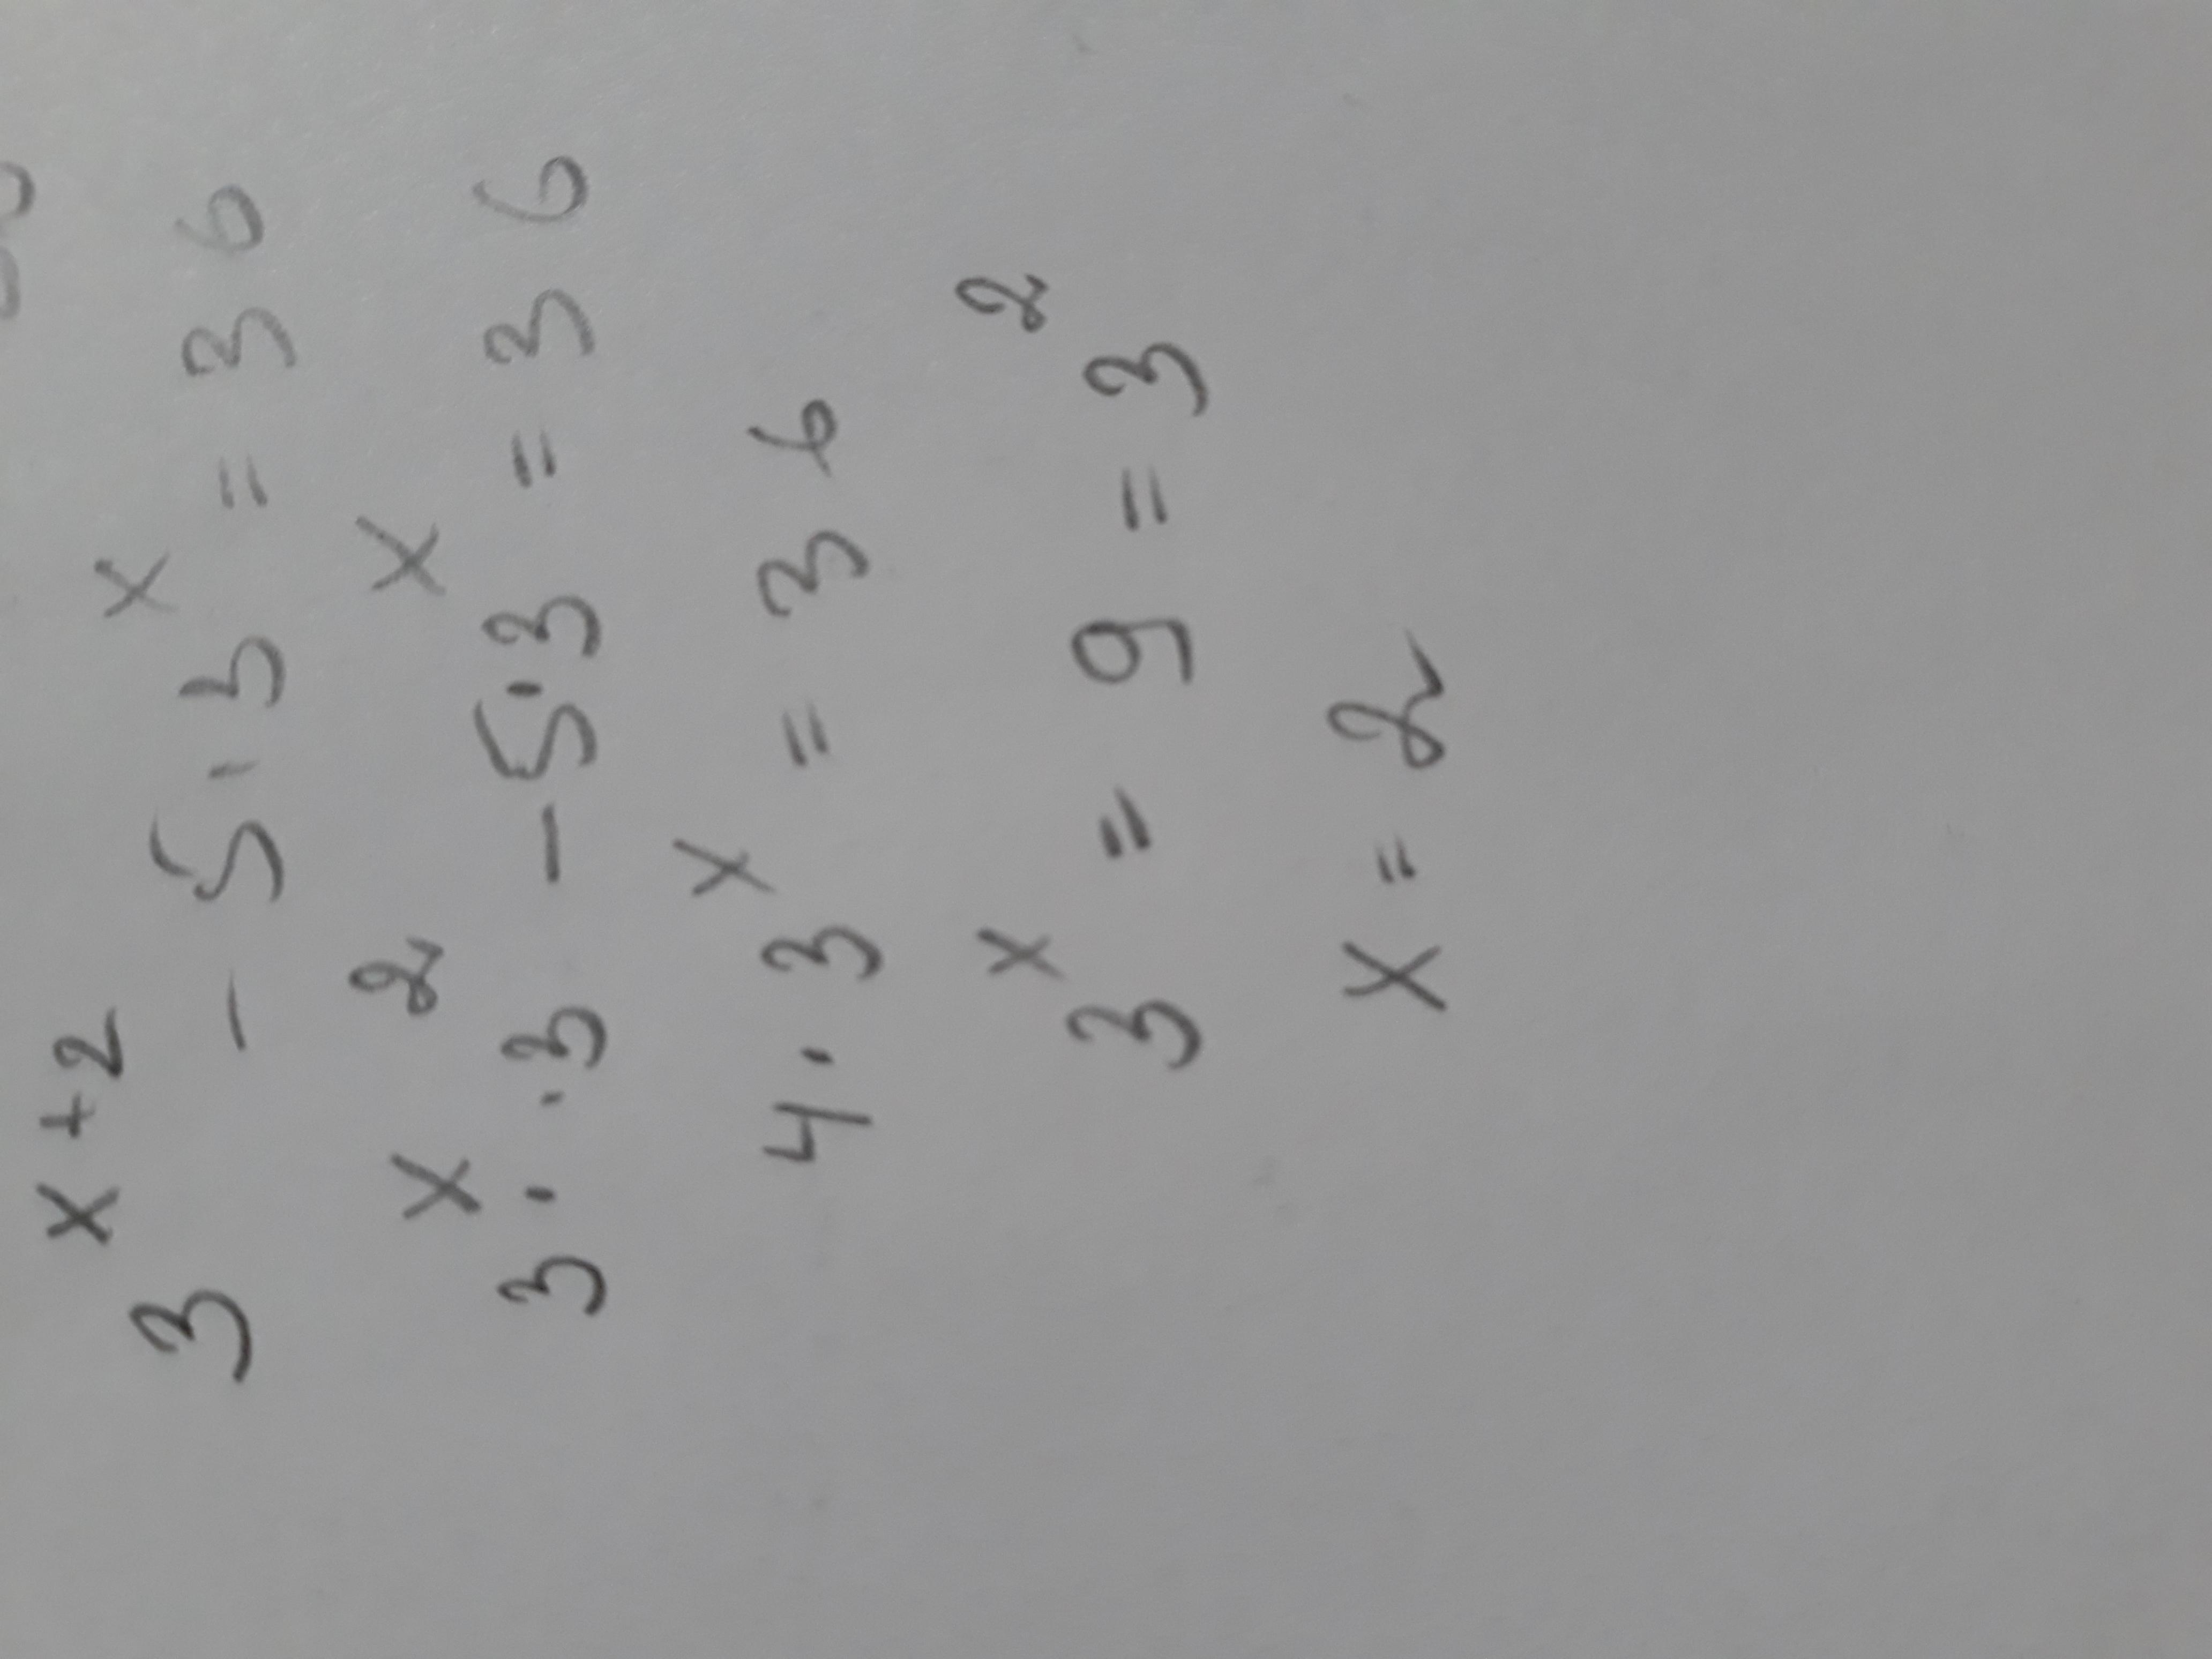 3^{x+2} - 5 · 3^x = 36
3^x · · 3^2 - 5 · 3^x = 36
4 · 3^x = 36
3^x = 9 = 3^2
x = 2